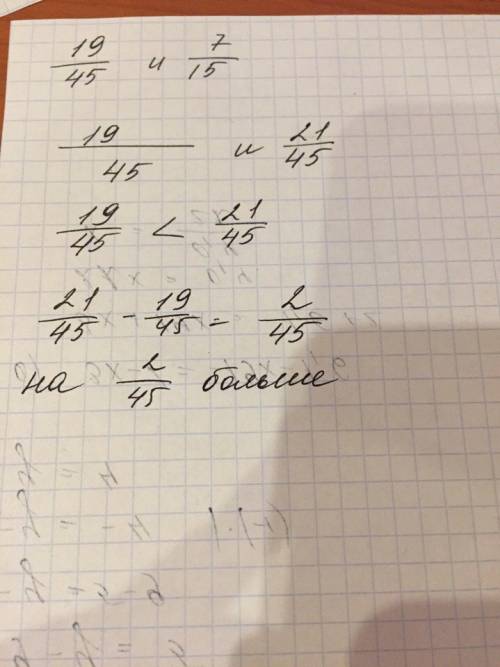 19/45 и 7/15
19/45 и 21/45
19/45 < 21/45
21/45 - 19/45 = 2/45
на 2/45 больше